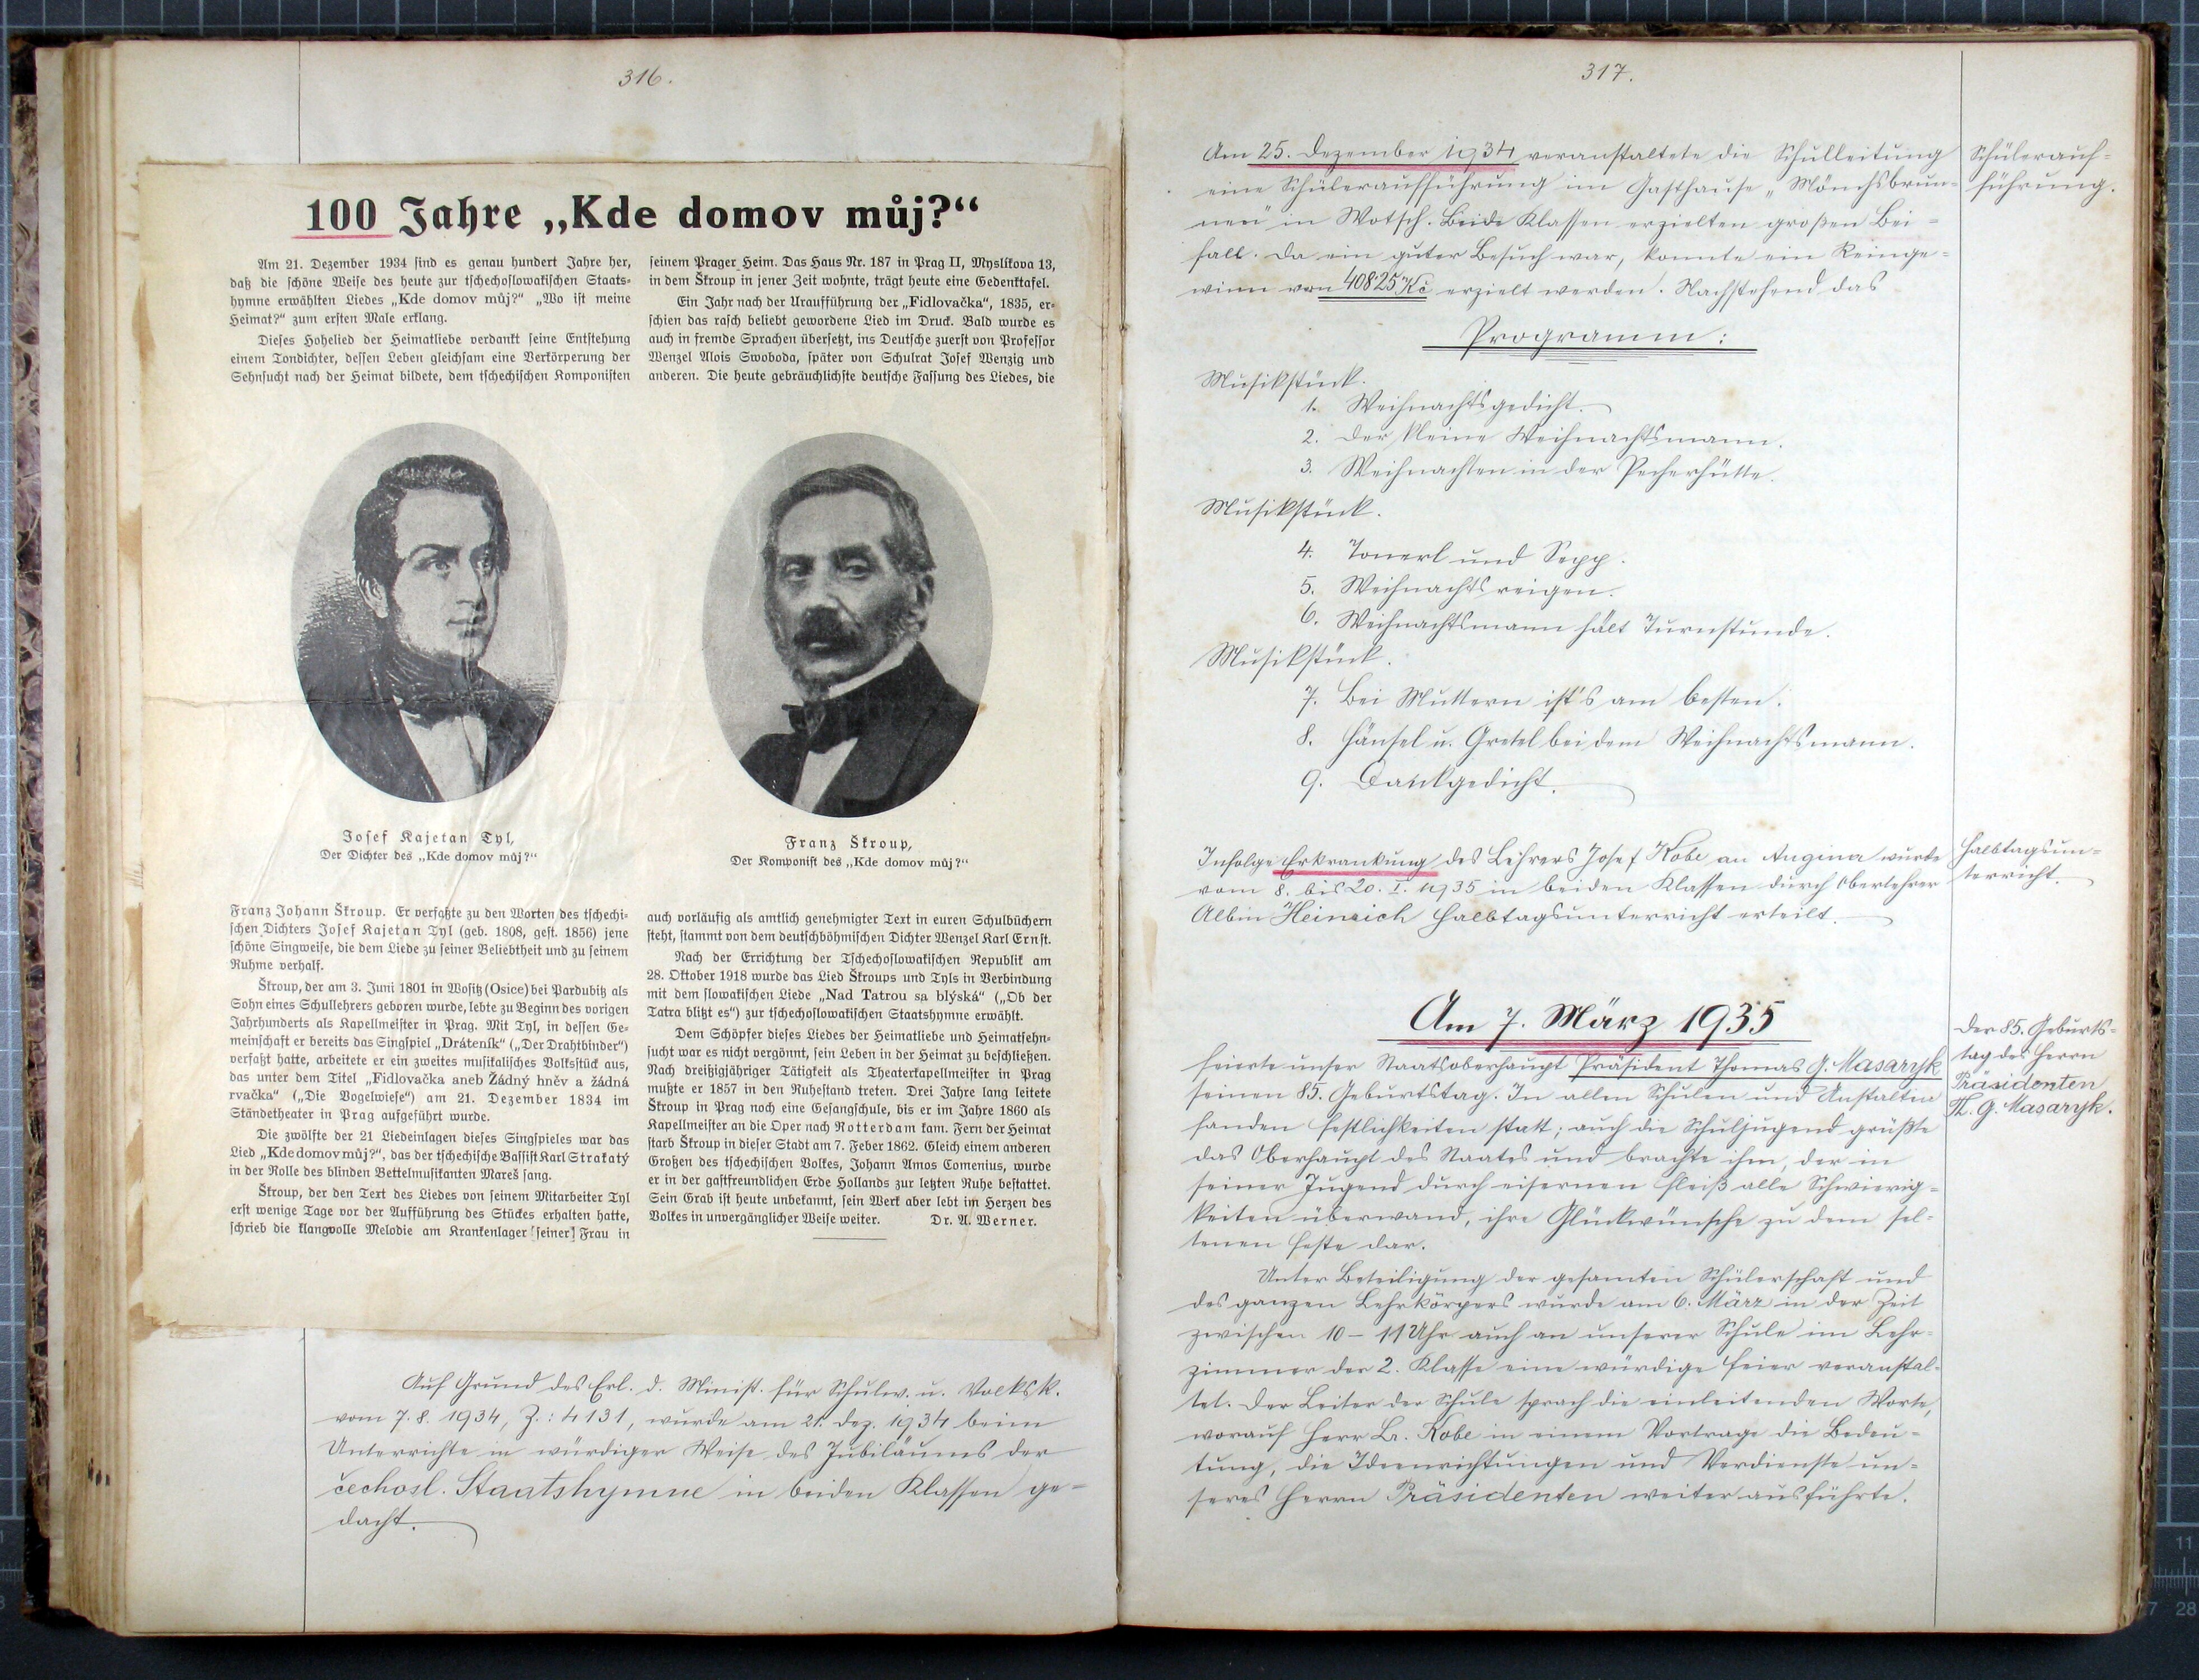 316.
100 Jahre „Kde domov můj?“
Am 21. Dezember 1934 sind es genau hundert Jahre her,
daß die schöne Weise des heute zur tschechoslowakischen Staats-
hymne erwählten Liedes „Kde domov můj?“ „Wo ist meine
Heimat?“ zum ersten Male erklang.
Dieses Hohelied der Heimatliebe verdankt seine Entstehung
einem Tondichter, dessen Leben gleichsam eine Verkörperung der
Sehnsucht nach der Heimat bildete, dem tschechischen Komponisten
seinem Prager Heim. Das Haus Nr. 187 in Prag II, Myslíkova 13,
in dem Škroup in jener Zeit wohnte, trägt heute eine Gedenktafel.
Ein Jahr nach der Uraufführung der „Fidlovačka“, 1835, er-
schien das rasch beliebt gewordene Lied im Druck. Bald wurde es
auch in fremde Sprachen übersetzt, ins Deutsche zuerst von Professor
Wenzel Alois Swoboda, später von Schulrat Josef Wenzig und
anderen. Die heute gebräuchlichste deutsche Fassung des Liedes, die
Josef Kajetan Tyl,
Der Dichter des „Kde domov můj?“
Franz Škroup,
Der Komponist des „Kde domov můj?“
Franz Johann Škroup. Er verfaßte zu den Worten des tschechi-
schen Dichters Josef Kajetan Tyl (geb. 1808, gest. 1856) jene
schöne Singweise, die dem Liede zu seiner Beliebtheit und zu seinem
Ruhme verhalf.
Škroup, der am 3. Juni 1801 in Wositz (Osice) bei Pardubitz als
Sohn eines Schullehrers geboren wurde, lebte zu Beginn des vorigen
Jahrhunderts als Kapellmeister in Prag. Mit Tyl, in dessen Ge-
meinschaft er bereits das Singspiel „Dráteník“ („Der Drahtbinder“)
verfaßt hatte, arbeitete er ein zweites musikalisches Volksstück aus,
das unter dem Titel „Fidlovačka aneb Žádný hněv a žádná
rvačka“ („Die Vogelwiese“) am 21. Dezember 1834 im
Ständetheater in Prag aufgeführt wurde.
Die zwölfte der 21 Liedeinlagen dieses Singspieles war das
Lied „Kde domov můj?“, das der tschechische Bassist Karl Strakatý
in der Rolle des blinden Bettelmusikanten Mareš sang.
Škroup, der den Text des Liedes von seinem Mitarbeiter Tyl
erst wenige Tage vor der Aufführung des Stückes erhalten hatte,
schrieb die klangvolle Melodie am Krankenlager [seiner] Frau in
auch vorläufig als amtlich genehmigter Text in euren Schulbüchern
steht, stammt von dem deutschböhmischen Dichter Wenzel Karl Ernst.
Nach der Errichtung der Tschechoslowakischen Republik am
28. Oktober 1918 wurde das Lied Škroups und Tyls in Verbindung
mit dem slowakischen Liede „Nad Tatrou sa blýská“ („Ob der
Tatra blitzt es“) zur tschechoslowakischen Staatshymne erwählt.
Dem Schöpfer dieses Liedes der Heimatliebe und Heimatsehn-
sucht war es nicht vergönnt, sein Leben in der Heimat zu beschließen.
Nach dreißigjähriger Tätigkeit als Theaterkapellmeister in Prag
mußte er 1857 in den Ruhestand treten. Drei Jahre lang leitete
Škroup in Prag noch eine Gesangschule, bis er im Jahre 1860 als
Kapellmeister an die Oper nach Rotterdam kam. Fern der Heimat
starb Škroup in dieser Stadt am 7. Feber 1862. Gleich einem anderen
Großen des tschechischen Volkes, Johann Amos Comenius, wurde
er in der gastfreundlichen Erde Hollands zur letzten Ruhe bestattet.
Sein Grab ist heute unbekannt, sein Werk aber lebt im Herzen des
Volkes in unvergänglicher Weise weiter. Dr. A. Werner.
Auf Grund des Erl. d. Minist. für Schulw. u. Volksk.
vom 7.8. 1934, Z.: 4131, wurde am 21. Dez. 1934 beim
Unterrichte in würdiger Weise des Jubiläums der
čechosl. Staatshymne in beiden Klassen ge-
dacht.
317.
Am 25. Dezember 1934 veranstaltete die Schulleitung
eine Schüleraufführung im Gasthause „Mönchsbrun-
nen“ in Wotsch. Beide Klassen erzielten großen Bei-
fall. Da ein guter Besuch war, konnte ein Reinge-
winn von 408.25 Kč erzielt werden. Nachstehend das
Schülerauf-
führung.
Programm:
Musikstück.
1. Weihnachtsgedicht.
2. Der kleine Weihnachtsmann.
3. Weihnachten in der Pecherhütte.
Musikstück.
4. Tonerl und Sepp.
5. Weihnachtsreigen.
6. Weihnachtsmann hält Turnstunde.
Musikstück.
7. Bei Muttern ist's am besten.
8. Hänsel u. Gretel bei dem Weihnachtsmann.
9. Dankgedicht.
Infolge Erkrankung des Lehrers Josef Kobe an Angina wurde
vom 8. bis 20. I. 1935 in beiden Klassen durch Oberlehrer
Albin Heinrich Halbtagsunterricht erteilt.
Halbtagsun-
terricht.
Am 7. März 1935
feierte unser Staatsoberhaupt Präsident Thomas G. Masaryk
seinen 85. Geburtstag. In allen Schulen und Anstalten
fanden Festlichkeiten statt; auch die Schuljugend grüßte
das Oberhaupt des Staates und brachte ihm, der in
seiner Jugend durch eisernen Fleiß alle Schwierig-
keiten überwand, ihre Glückwünsche zu dem sel-
tenen Feste dar.
Der 85. Geburts-
tag des Herrn
Präsidenten
Th. G. Masaryk.
Unter Beteiligung der gesamten Schülerschaft und
des ganzen Lehrkörpers wurde am 6. März in der Zeit
zwischen 10 – 11 Uhr auch an unserer Schule im Lehr-
zimmer der 2. Klasse eine würdige Feier veranstal-
tet. Der Leiter der Schule sprach die einleitenden Worte,
worauf Herr Lr. Kobe in einem Vortrage die Bedeu-
tung, die Ideenrichtungen und Verdienste un-
seres Herrn Präsidenten weiter ausführte.
11
7 28